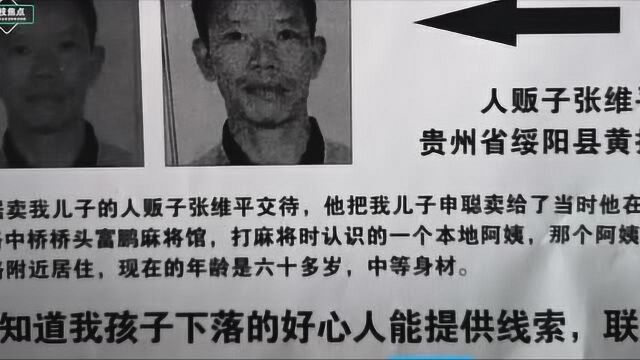 焦点
人贩子张维平
贵州省绥阳县黄
卖我儿子的人贩子张维平交待，他把我儿子申聪卖给了当时他在
中桥桥头富鹏麻将馆，打麻将时认识的一个本地阿姨，那个阿姨
附近居住，现在的年龄是六十多岁，中等身材。
知道我孩子下落的好心人能提供线索，联